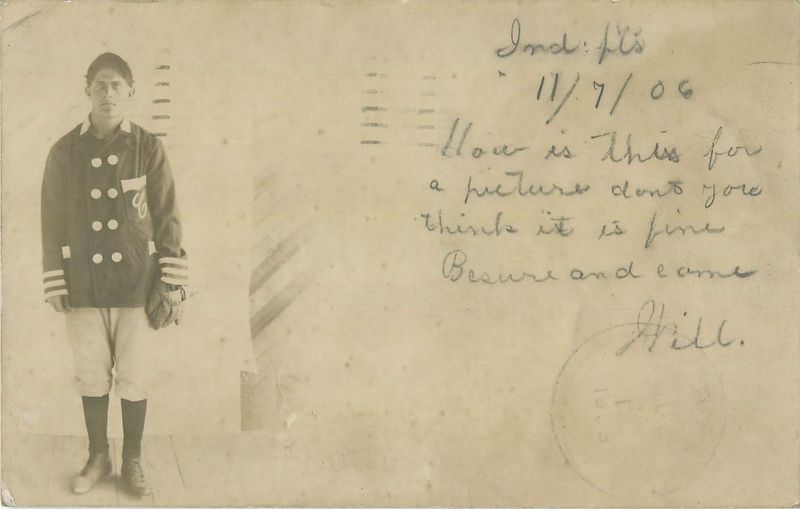 Ind: pls
11/7/06
How is this for
a picture dont you
think it is fine
Besure and come
Will.